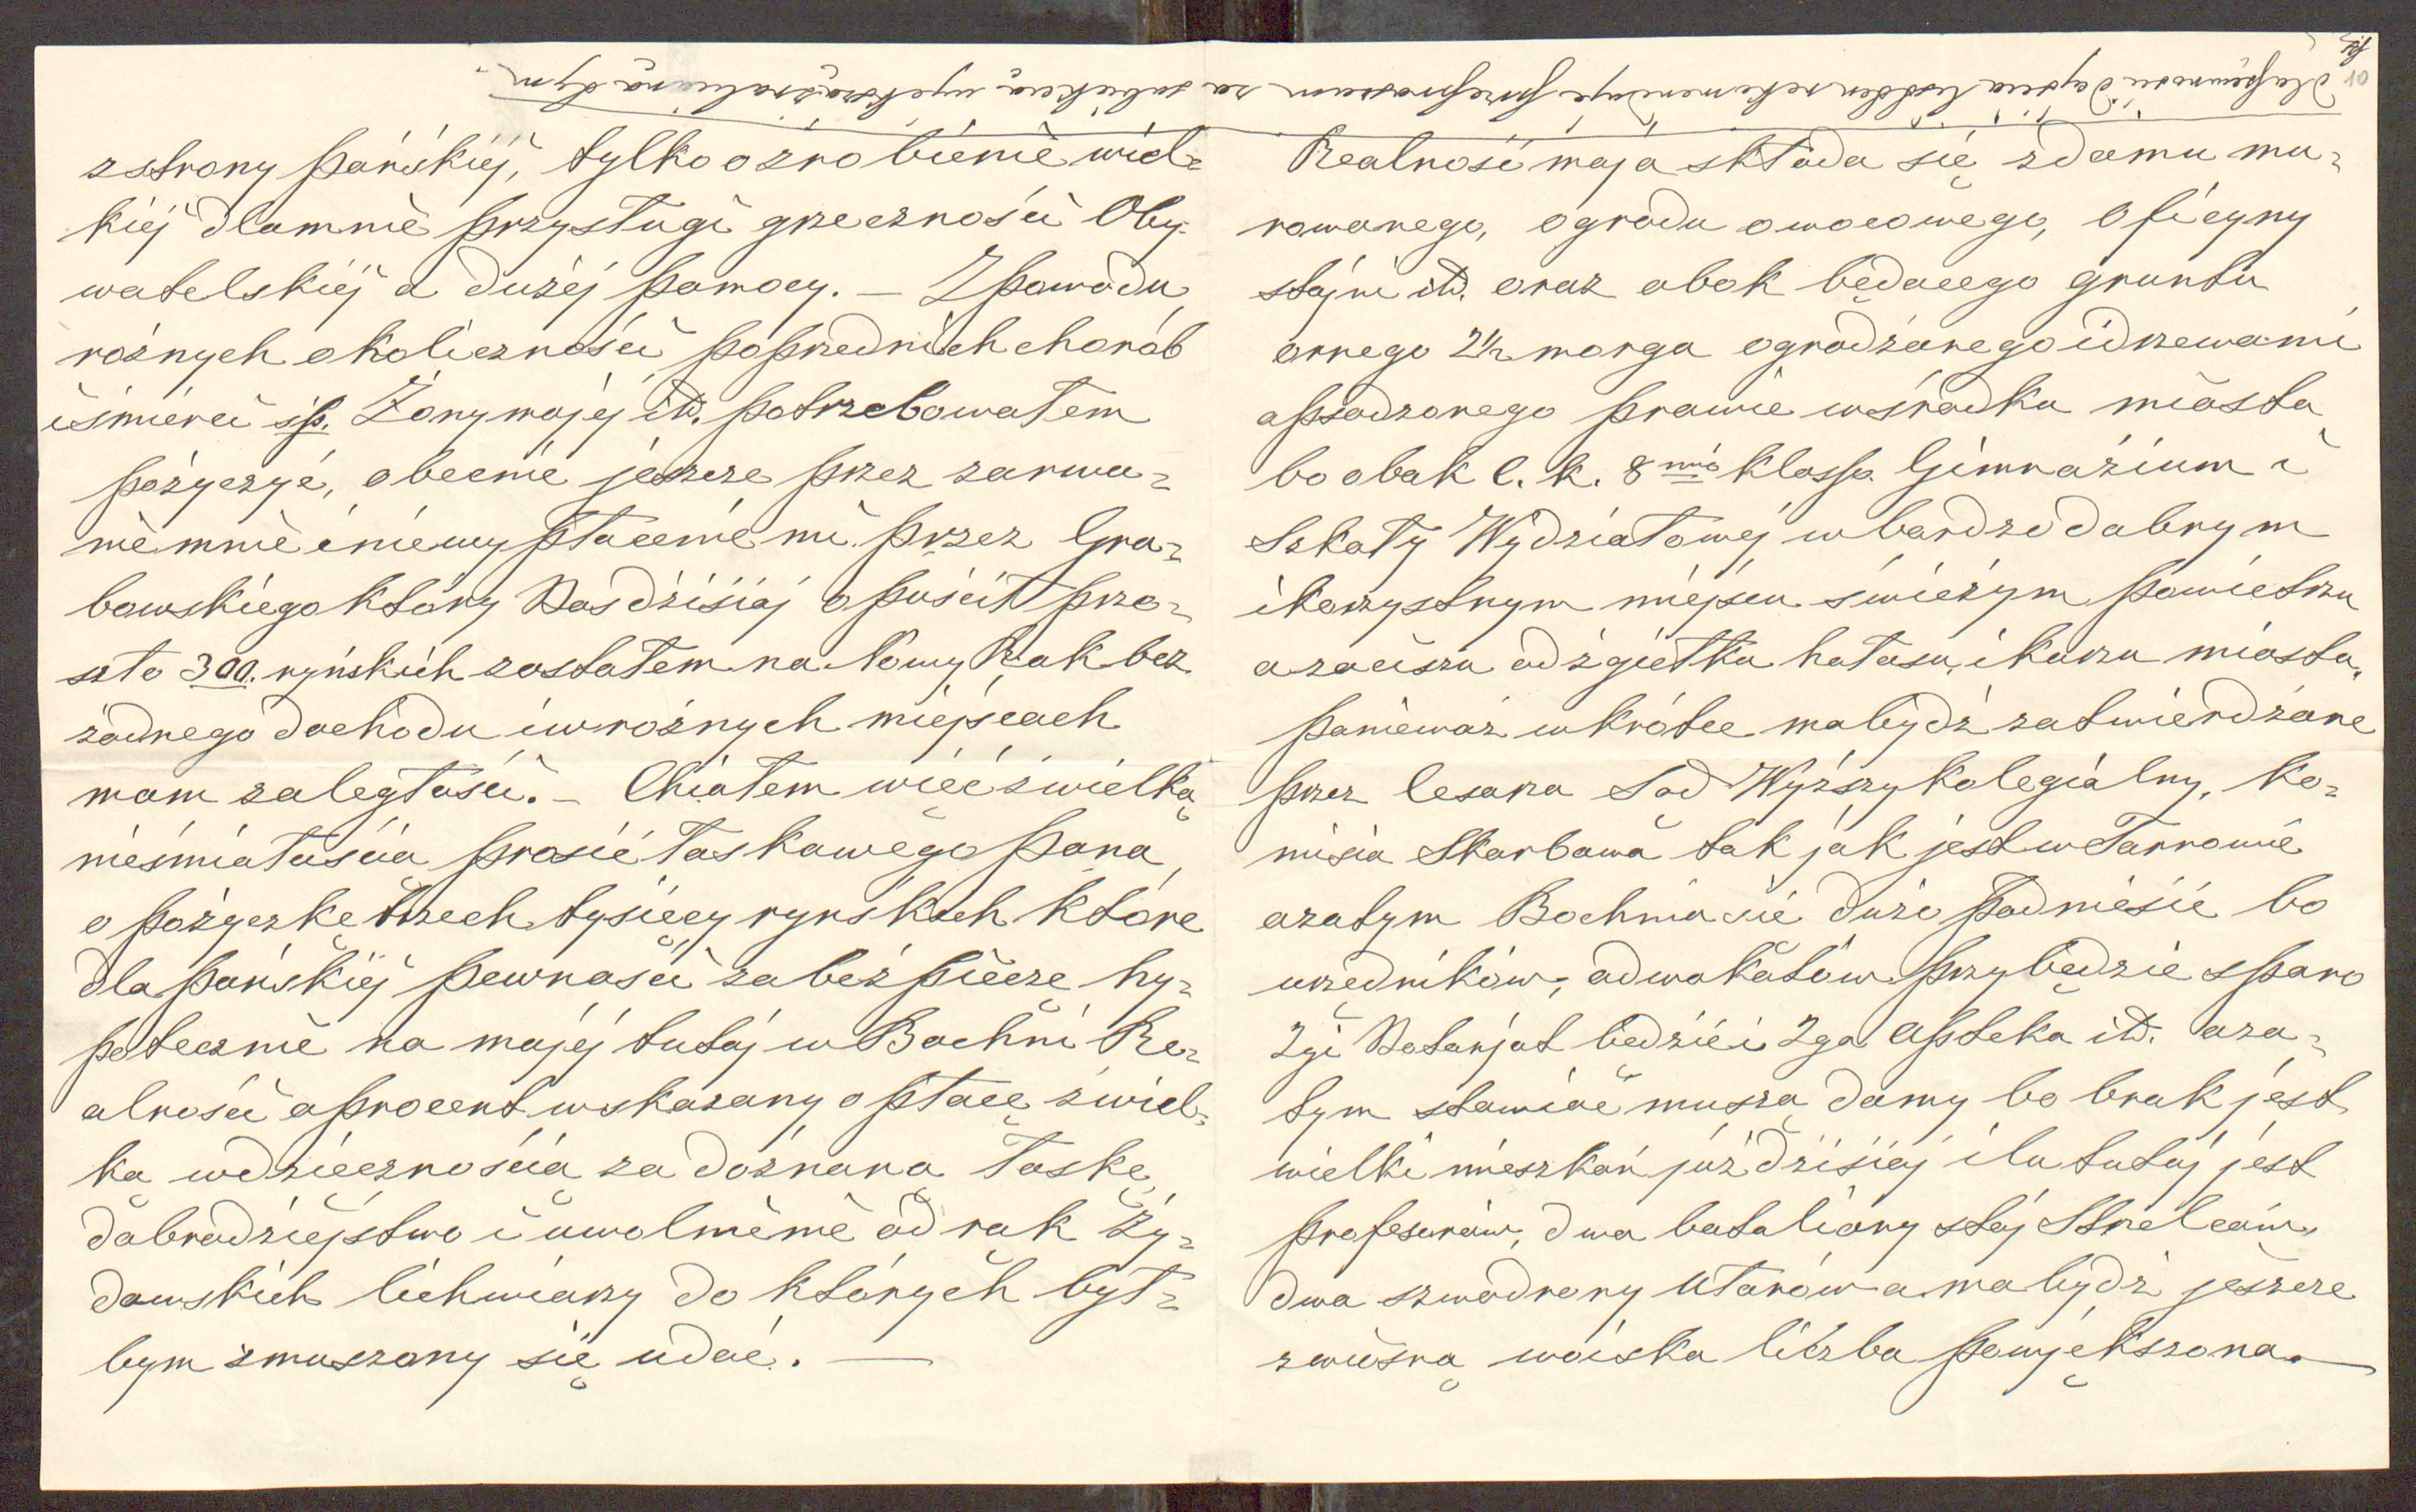 z strony pańskiéj, tylko o zrobiénié wiel=
kiéj dlamnié przysługi grzeczności Oby-
watelskiéj a dużéj pomocy. — Z powodu
róznych okoliczności poprzednich chorób
i śmierci śp. Żony mojéj itd. potrzebowałem
pożyczyć, obecnie jeszcze przez zarwa=
nié mnié i niéwypłacenié mi przez Gra=
bowskiego który Nas dzisiaj opuścił prze=
szło 300. ryńskich zostałem na Nowy Rok bez
żadnego dochodu i w róznych miéjscach
mam zaległości. — Chciałem więc z wielką
nieśmiałością prosić łaskawego Pana
o pożyczkę trzech tysięcy ryńskich które
dla pańskiéj pewności zabezpieczę hy=
potecznié na mojéj tutaj w Bochni Re=
alności a procent wskazany opłacę z wiel=
ką wdzięcznością za doznaną łaskę
dobrodziéjstwo i uwolniénié od rąk Ży=
dowskich lichwiarzy do których był=
bym zmuszony się udać. —
Dla pewności Dojścia
Realność moja składa się z domu mu=
rowanego, ogrodu owocowego, oficyny
stajni itd. oraz obok będącego gruntu
ornego 2½ morga ogrodzonego i drzewami
opsadzonego prawie w środku miasta
bo obok C. k. 8mio klass. Gimnazium i
Szkoły Wydziałowéj w bardzo dobrym
i korzystnym miéjscu świéżym powietrzu
a zaciszu od zgiełku hałasu, i kurzu miasta,
poniéważ wkrótce ma bydź zatwierdzone
przez Cesarza Sąd Wyższy kolegialny, Ko=
misia Skarbowa tak jak jest w Tarnowie
a zatym Bochnia się dużo podniesie bo
urzędników, adwokatów przybędzie sporo
2gi Notarjat będzie i 2ga Apteka itd. a za=
tym stawiać muszą domy bo brak jest
wielki mieszkań już dzisiaj ilu tutaj jest
profesorów, dwa bataliony stoj Strzelców
dwa szwadrony Ułanów a ma bydź jeszcze
z wiosną wojska liczba powjększona. —